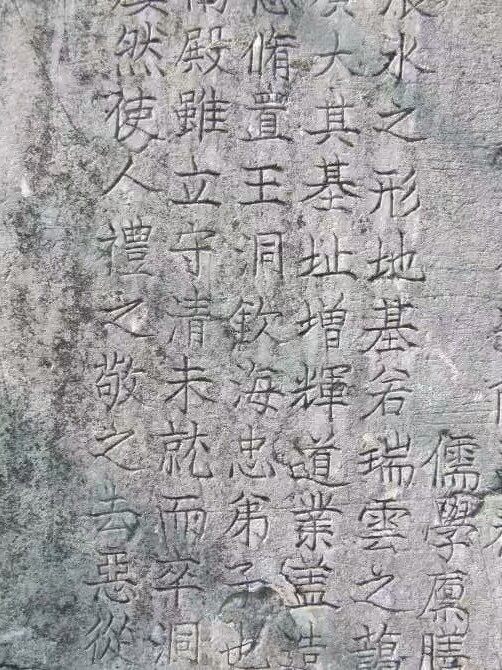 儒學廩膳
水之形地基若瑞雲之
大其基址增輝道業蓋
脩置王洞欽海忠弟子也
殿雖立守清未就而卒洞
然使人禮之敬之去惡從